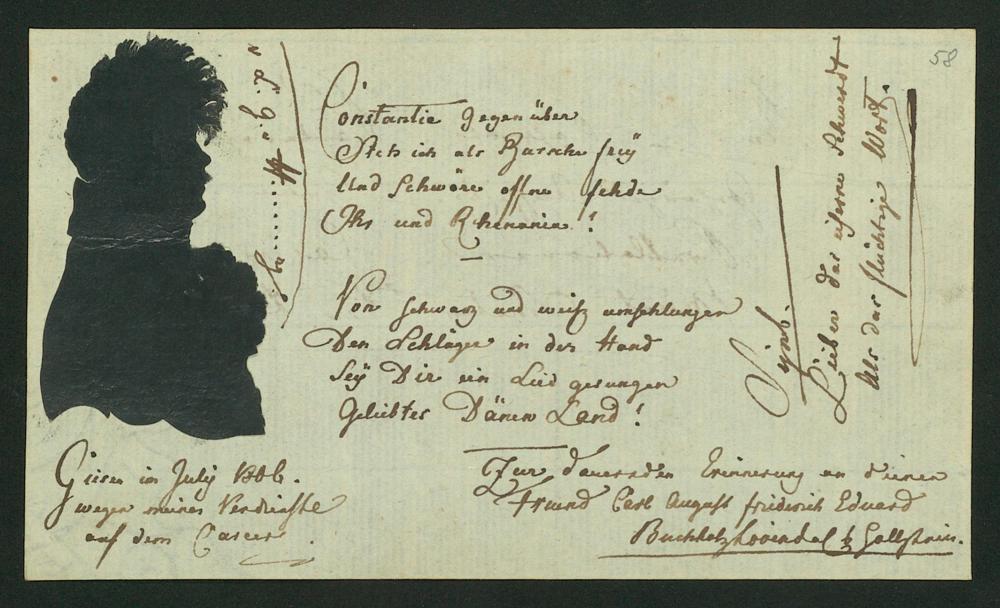 58
Constantie gegenüber
Steh ich als Bursche freÿ
Und Schwöre offne fehde
Ihr und Rhenania!
Von schwarz und weiß umschlungen
Den Schläger in der Hand
Seÿ Dir ein Lied gesungen
Geliebtes Dänen Land!
Symb.
Lieber das eiserne Schwerdt
Als das flüchtige Wort.
Giesen im Julÿ 1806.
wegen meiner Verdienste
auf dem Carcer.
Zur dauernden Erinnerung an deinen
Freund Carl August friderich Eduard